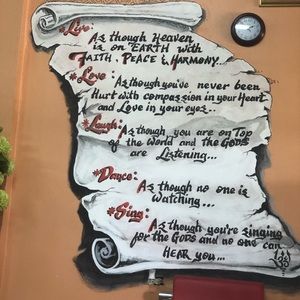 *Live:
As though Heaven
is on EARTH with
FAITH, PEACE & HARMONY...
*Love:
As though you've never been
Hurt with compassion in your Heart
and Love in your eyes..
*Laugh:
As though you are on Top
of the World and the GODS
are Listening...
*Dance:
As though no one is
watching...
*Sing:
As though you're singing
for the GODS and no one can
HEAR you...